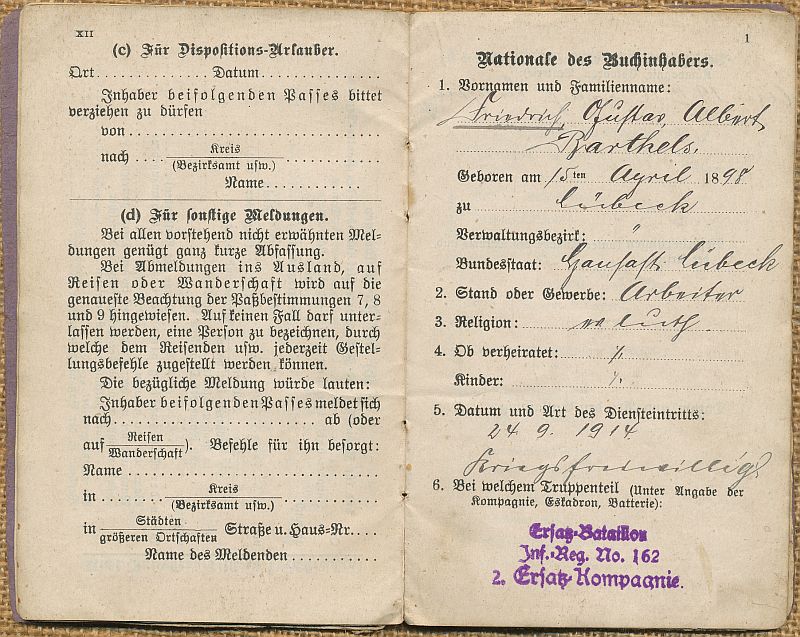 XII
(c) Für Dispositions-Urlauber.
Ort . . . . . . . . . . . . Datum . . . . . . . . . . . . .
Inhaber beifolgenden Passes bittet
verziehen zu dürfen
von . . . . . . . . . . . . . . . . . . . . . . . . .
nach . . . . Kreis
(Bezirksamt usw.)
Name . . . . . . . . . . . .
(d) Für sonstige Meldungen.
Bei allen vorstehend nicht erwähnten Mel-
dungen genügt ganz kurze Abfassung.
Bei Abmeldungen ins Ausland, auf
Reisen oder Wanderschaft wird auf die
genaueste Beachtung der Paßbestimmungen 7, 8
und 9 hingewiesen. Auf keinen Fall darf unter-
lassen werden, eine Person zu bezeichnen, durch
welche dem Reisenden usw. jederzeit Gestel-
lungsbefehle zugestellt werden können.
Die bezügliche Meldung würde lauten:
Inhaber beifolgenden Passes meldet sich
nach . . . . . . . . . . . . . . . . . . . . . . ab (oder
auf Reisen
Wanderschaft). Befehle für ihn besorgt:
Name . . . . . . . . . . . . . . . . . . . . . . . . . . .
in . . . . . . . . Kreis
(Bezirksamt usw.)
in Städten
größeren Ortschaften Straße u. Haus-Nr. . . .
Name des Meldenden . . . . . . . . .
1
Nationale des Buchinhabers.
1. Vornamen und Familienname:
Friedrich, Gustav, Albert
Barthels.
Geboren am 15ten April 1898
zu Lübeck
Verwaltungsbezirk: "
Bundesstaat: Hansast. Lübeck
2. Stand oder Gewerbe: Arbeiter
3. Religion: ev luth.
4. Ob verheiratet: ./.
Kinder: ./.
5. Datum und Art des Diensteintritts:
24. 9. 1914
Kriegsfreiwillig
6. Bei welchem Truppenteil (Unter Angabe der
Kompagnie, Eskadron, Batterie):
Ersatz-Bataillon
Inf.-Reg. No. 162
2. Ersatz-Kompagnie.